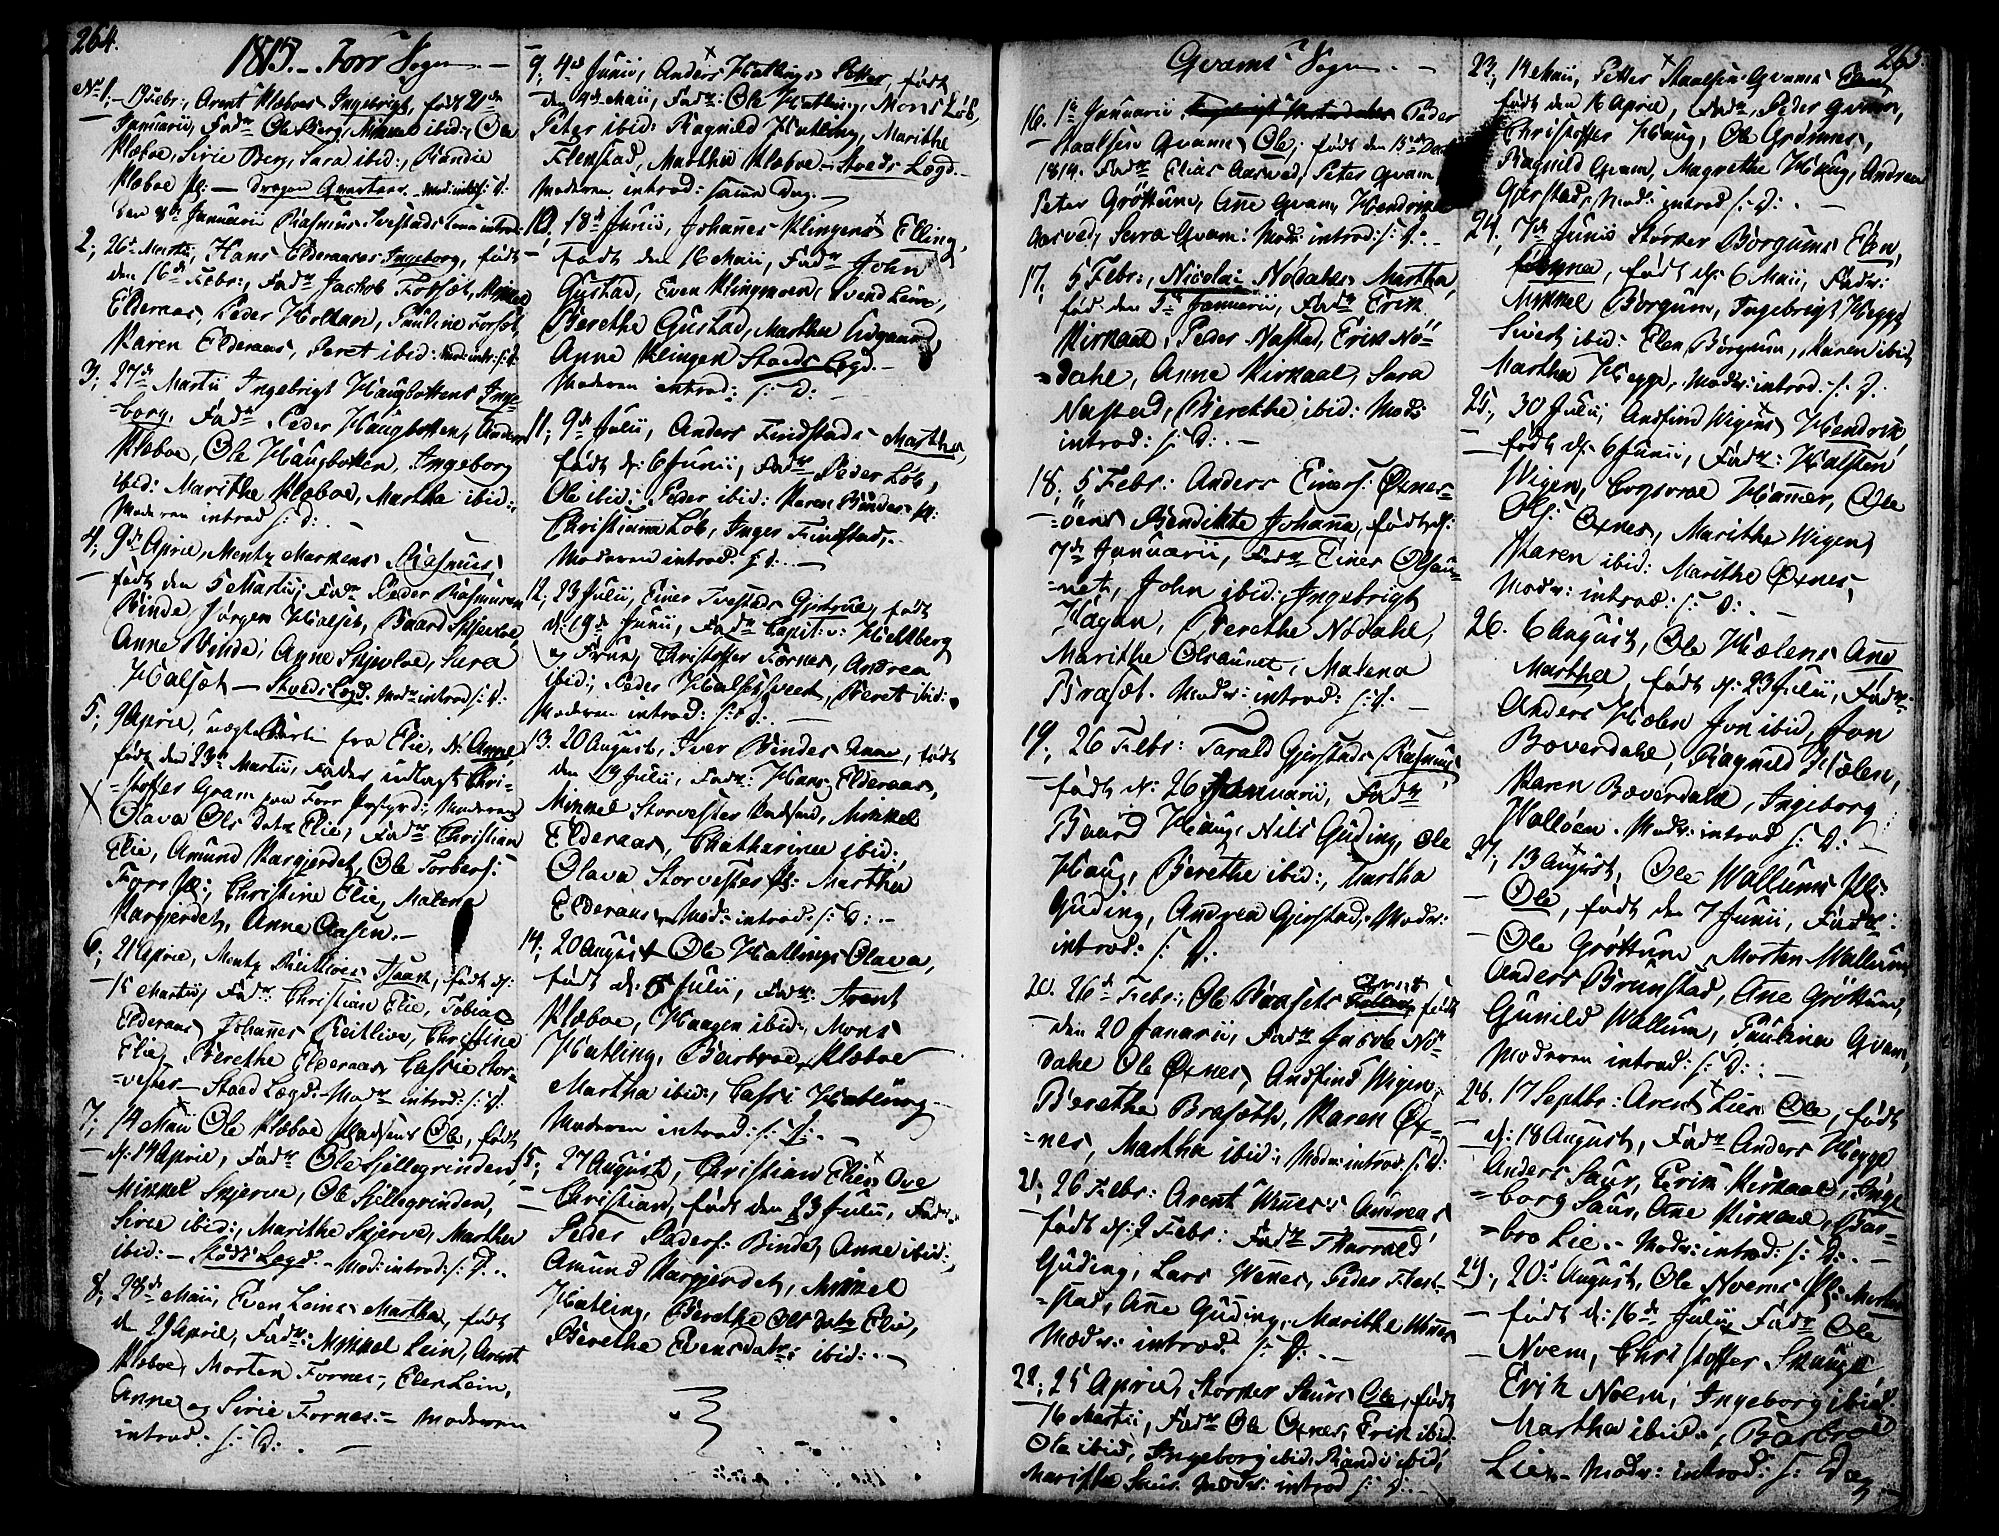 264.
1815. Forr Sogn
No 1, 19 Febr:, Arent Klæboes Ingebrigt, født 21de
Januarii, Fadr Ole Berg, Mikkel ibid:, Ole
Klæboe, Sirie Berg, Sara ibid:, Randie
Klæboe pl: — Dragon Qvarteer. Mod: introd: s: D:
den 8de Januarii Rasmus Kone introd:
2, 26 Martii, Hans Elderaases Ingeborg, født
den 16de Febr:, Fadr Jacob Forsæt, Mikkel
Elderaas, Peder Holtan, Pauline Forsæt
Karen Elderaas, Beret ibid: Mod: intr: s: D:
3, 27de Martii Ingebrigt Haugbottens Inge-
=borg, Fadr Peder Haugbotten, Anders
Klæboe, Ole Haugbotten, Ingeborg
ibid: Marithe Klæboe, Martha ibid:
Moderen introd: s: D:
4, 9de April, Mentz Markens Rasmus,
født den 5 Martii, Fadr Peder Rasmusen
Binde, Jørgen Halset, Baard Skjerloe,
Anne Binde, Anne Skjerloe, Sara
Halsæt — Stoeds Legd. Modr introd: s: D:
5, 9 April, uægte Barn fra Elie, N: Anne,
født den 23de Martii, Fader, udlagt Chri-
=stoffer Gram paa Forr Præstgrd:, Moderen
Olava Ols Datr Elie, Fadr Christian
Elie, Amund Kargjerdet, Ole Torbers:
Forr pl:, Christine Elie, Malena
Kargjerdet, Anne Aasen.
6, 21 April, Mentz Reitloes Isaach, født d:
15 Martii, Fadr: Christian Elie, Tobias
Elderaas, Johannes Reitloe, Christine
Elie, Berethe Elderaas, Cassrie Stor-
=vester — Stoed Lægd. Modr introd: s: D:
7, 14 Maii Ole Klæboe Pladsens Ole, født
d: 14 April, Fadr Ole Sjellegrinden,
Mikkel Skjerve, Ole Sjellegrinden,
Sirie ibid:, Marithe Skjerve, Martha
ibid: — Stods Legd. — Mod: introd: s: D:
8, 28de Maii, Even Leins Martha, født
d 29 April, Fadr: Mikkel Lein, Arent
Klæboe, Morten Fornes, Elen Lein,
Anne og Sirie Fornes. — Moderen
introd: s: D:
9, 4de Junii, Anders Hatlings Petter, født
den 4de Maii, Fadr: Ole Hatling, Mons Løb,
Peter ibid: Ragnild Hatling, Marithe
Flekstad, Martha Klæboe — Stoeds Lægd.
Moderen introd: samme Dag.
10, 18de Junii, Johanes Klingens Elling,
født den 16 Maii, Fadr John
Gustad, Even Klingmoen, Svend Leine,
Berethe Gustad, Martha
Anne Klingen Stoeds Legd.
Moderen introd: s: D:
11, 9de Julii, Anders Findstads Martha,
født d: 6 Junii, Fadr: Peder Løb,
Ole ibid: Peder ibid: Karen Bindes pl:
Christianna Løb, Inger Findstad,
Moderen introd: s: D:
12, 23 Julii, Einer Tvestads Gjertrue, født
d: 19de Junii, Fadr Capit: v: Helberg
og Frue, Christoffer Fornes, Andrea
ibid:, Peder Halsetsveet, Beret ibid:
Moderen introd: s: D:
13. 20 August, Iver Bindes Anne, født
den 19 Julii, Fadr: Hans Elderaas,
Mikkel Storvester Pladsen, Mikkel
Elderaas, Chatharina ibid:,
Olava Storvester pl: Martha
Elderaas, Mod: introd: s: D:
14, 20 August Ole Hatlings Olava,
født d: 5 Julii, Fadr: Arent
Klæboe, Haagen ibid:, Mons
Hatling, Barbroe Klæboe
Martha ibid:, Cassri Hatling
Moderen introd: s: D:
15, 27 August, Christian Elies Ove
Christian, født den 23 Julii, Fadr.
Peder Peders: Binde, Anne ibid:
Amund Kargjerdet, Mikkel
Hatling, Berethe Ols Datr Elie,
Berethe Evensdatr ibid:
Qvams Sogn
265.
16. 1te Januarii Peder
Staalsen Qvams Ole, født den 15de Decbr
1814. Fadr Elias Aasved, Peter Qvam
Peter Grøttum, Ane Qvam, Hendrika
Aasved, Serra Qvam: Modr: introd: s: D:
17, 5 Febr:, Nicolai Nødahls Martha,
født den 5te Januarii, Fadr Erik
Kirkaal, Peder Nastad, Erik Nø-
=dahl, Anne Kirkaal, Sara
Nastad, Berethe ibid: Modr:
introd: s: D:
18, 5 Febr: Anders Einers: Øxnes-
=øens Bendikte Johanna, født d:
7de Januarii, Fadr Einer Olsau-
=net, John ibid: Ingebrigt
Hagan, Berethe Nødahl,
Marithe Olsaunet, Malena
Brasæt. Modr: introd: s: D:
19, 26 Febr: Tarald Gjerstads Rasmus
født d: 26 Januarii, Fadr
Baard Haug, Nils Guding, Ole
Haug, Berethe ibid:, Martha
Guding, Andrea Gjerstad, Modr:
introd: s: D:
20. 26de Febr:, Ole Braasets født
den 20 Janarii, Fadr Jacob Nø-
dahl Ole Øxnes, Andfind Wigen,
Berethe Brasæth, Karen Øx-
=nes, Martha ibid:, Modr: introd: s: D:
21, 26 Febr: Arent Wanes Andreas,
født d: 2 Febr: Fadr Tharald
Guding, Lars Wenes, Peder Flest-
=stad, Ane Guding, Marithe Wanes
Modr: introd: s: D:
22, 25 April, Storker Saurs Ole, født
16 Martii, Fadr Ole Øxnes, Erik ibid:
Ole ibid, Ingeborg ibid: Randi ibid,
Marithe Saur. Modr: introd: s: D:
23, 14 Maii, Petter Staalsen Qvams Elen
født den 16 April, Fadr Peder Qvam,
Christoffer Haug, Ole Grønnes,
Ragnild Qvam, Magrethe Haug, Andrea
Gjerstad, Modr: introd s: D:
24, 7de Junii Størker Børgums Elen,
født d: 6 Maii, Fadr:
Mikkel Børgum, Ingebrigt Hegge
Siurt ibid: Elen Børgum, Karen ibid,
Martha Hegge, Modr: introd: s: D.
25, 30 Julii, Andfind Wigens Hendrik,
født d: 6 Junii, Fadr: Halsten
Wigen, Corporal Hamer, Ole
Ols: Øxnes, Marithe Wigen,
Karen ibid: Marithe Øxnes,
Modr: introd: s: D:
26. 6 August, Ole Hælens Ane
Martha, født d: 23 Julii, Fadr:
Anders Hælen Jon ibid, Jon
Bøverdahl, Ragnild Hælen,
Karen Bæverdahl, Ingeborg
Walløen. Modr: introd s: D:
27, 13 August, Ole Wallums pl:
Ole, født den 7 Junii, Fadr:
Ole Grøttum, Morten Wallum,
Anders Brunstad, Ane Grøttum,
Gunild Wallum, Paulina Qvam,
Moderen introd: s: D:
28. 17 Septbr: Arent Lien Ole, født
d: 18 August, Fadr Anders Hegge
Anders Saur, Erik Kirkaal, Inge
=borg Saur, Ane Kirkaal, Bar-
=bro Lie. Modr: introd: s: D:
29, 20de August, Ole Noems pl: Morten
født d: 16de Julii, Fadr Ole
Noem, Christoffer Skauge
Erik Noem, Ingeborg ibid:
Martha ibid:, Barbroe
Lie. Modr: introd: s: Dag